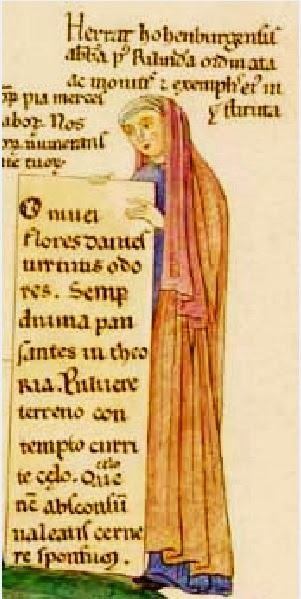 Herrat hohenburgensis
abba p' Rilinda ordinata
ac monitis & exemplis ei' in
stituta
pia merces
labor. Nos
numerans
tuor
O niuei
flores dantes
uirtutis odo
res. Semp
diuina pau
santes in theo
ria. Puluere
terreno con
tempto curri
te celo. Que
celo
nc absconsu
ualeatis cerne
re sponsum.